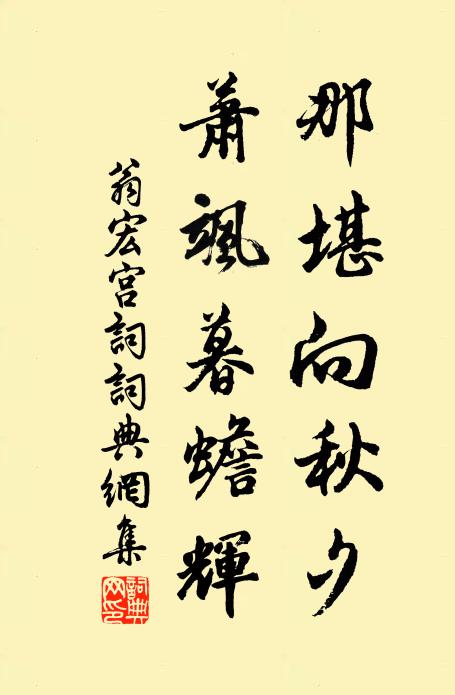 那堪向秋夕
蕭颯暮蟾輝
翁宏宮詞詞典網集
詞典網印